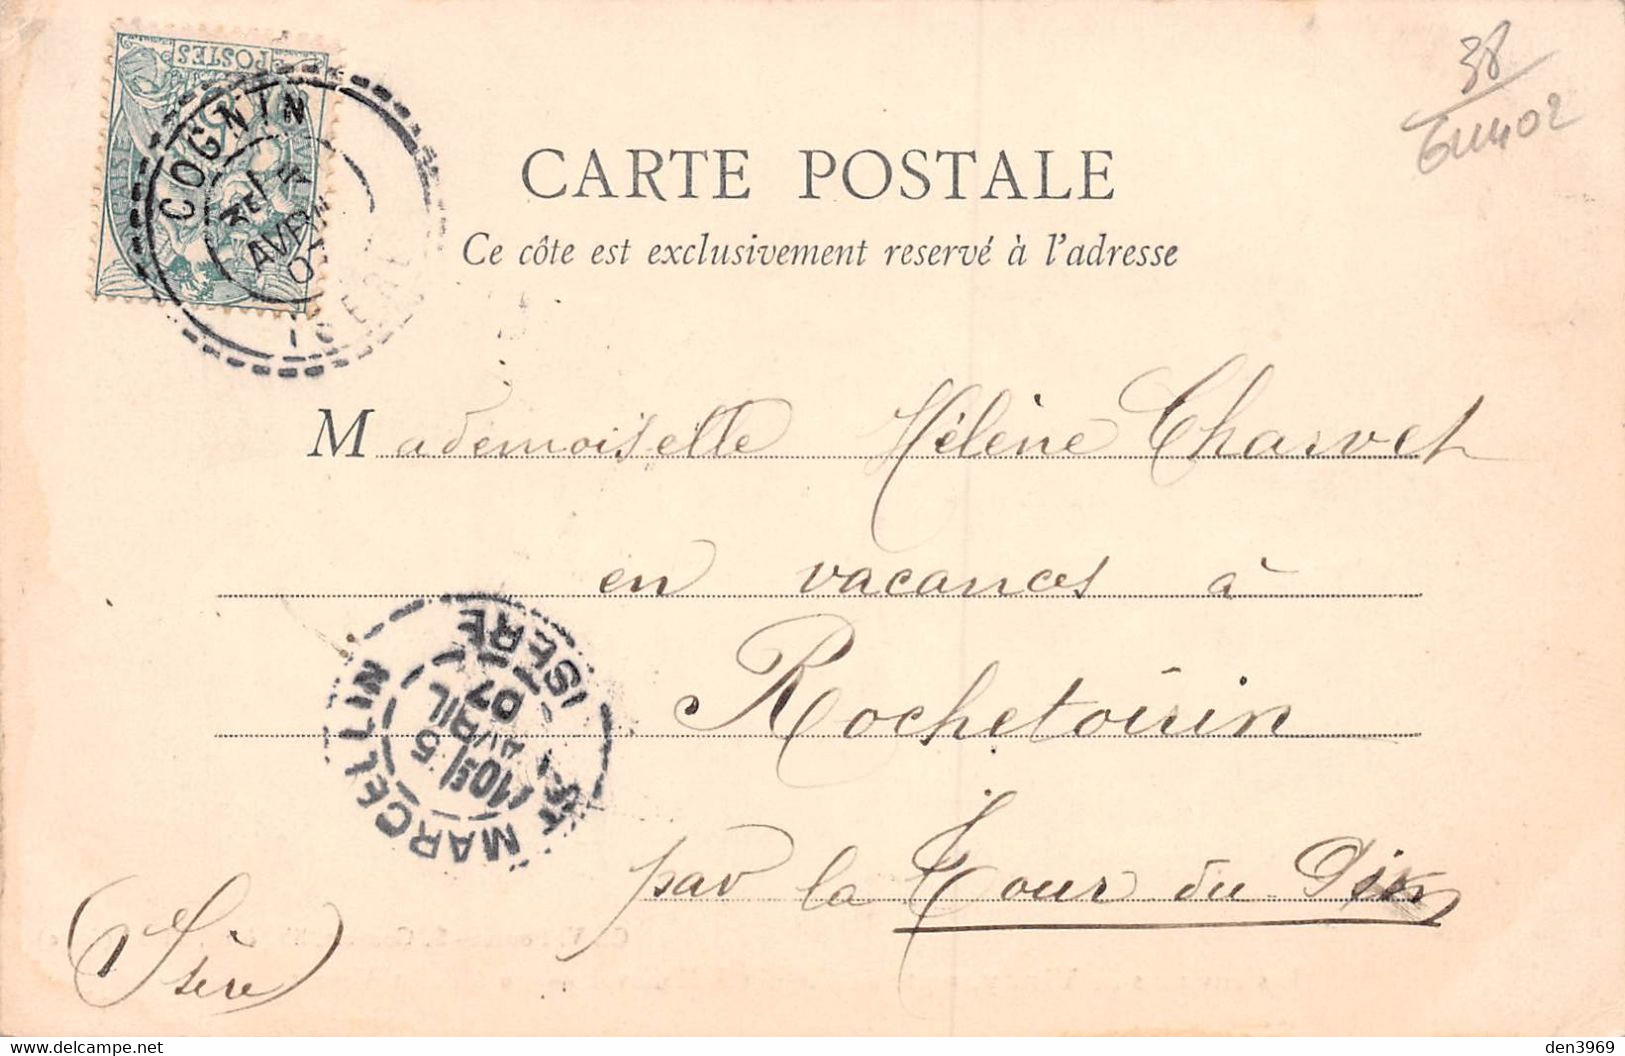 POSTES
COGNIN
AVRIL
07
ISERE
38
CARTE POSTALE
Ce côte est exclusivement reservé à l'adresse
Mademoiselle Hélène Charvet
en vacances à
Rochetoirin
par la Tour du Pin
(Isère)
ST MARCELLIN
10 5
AVRIL
07
ISERE
den3969